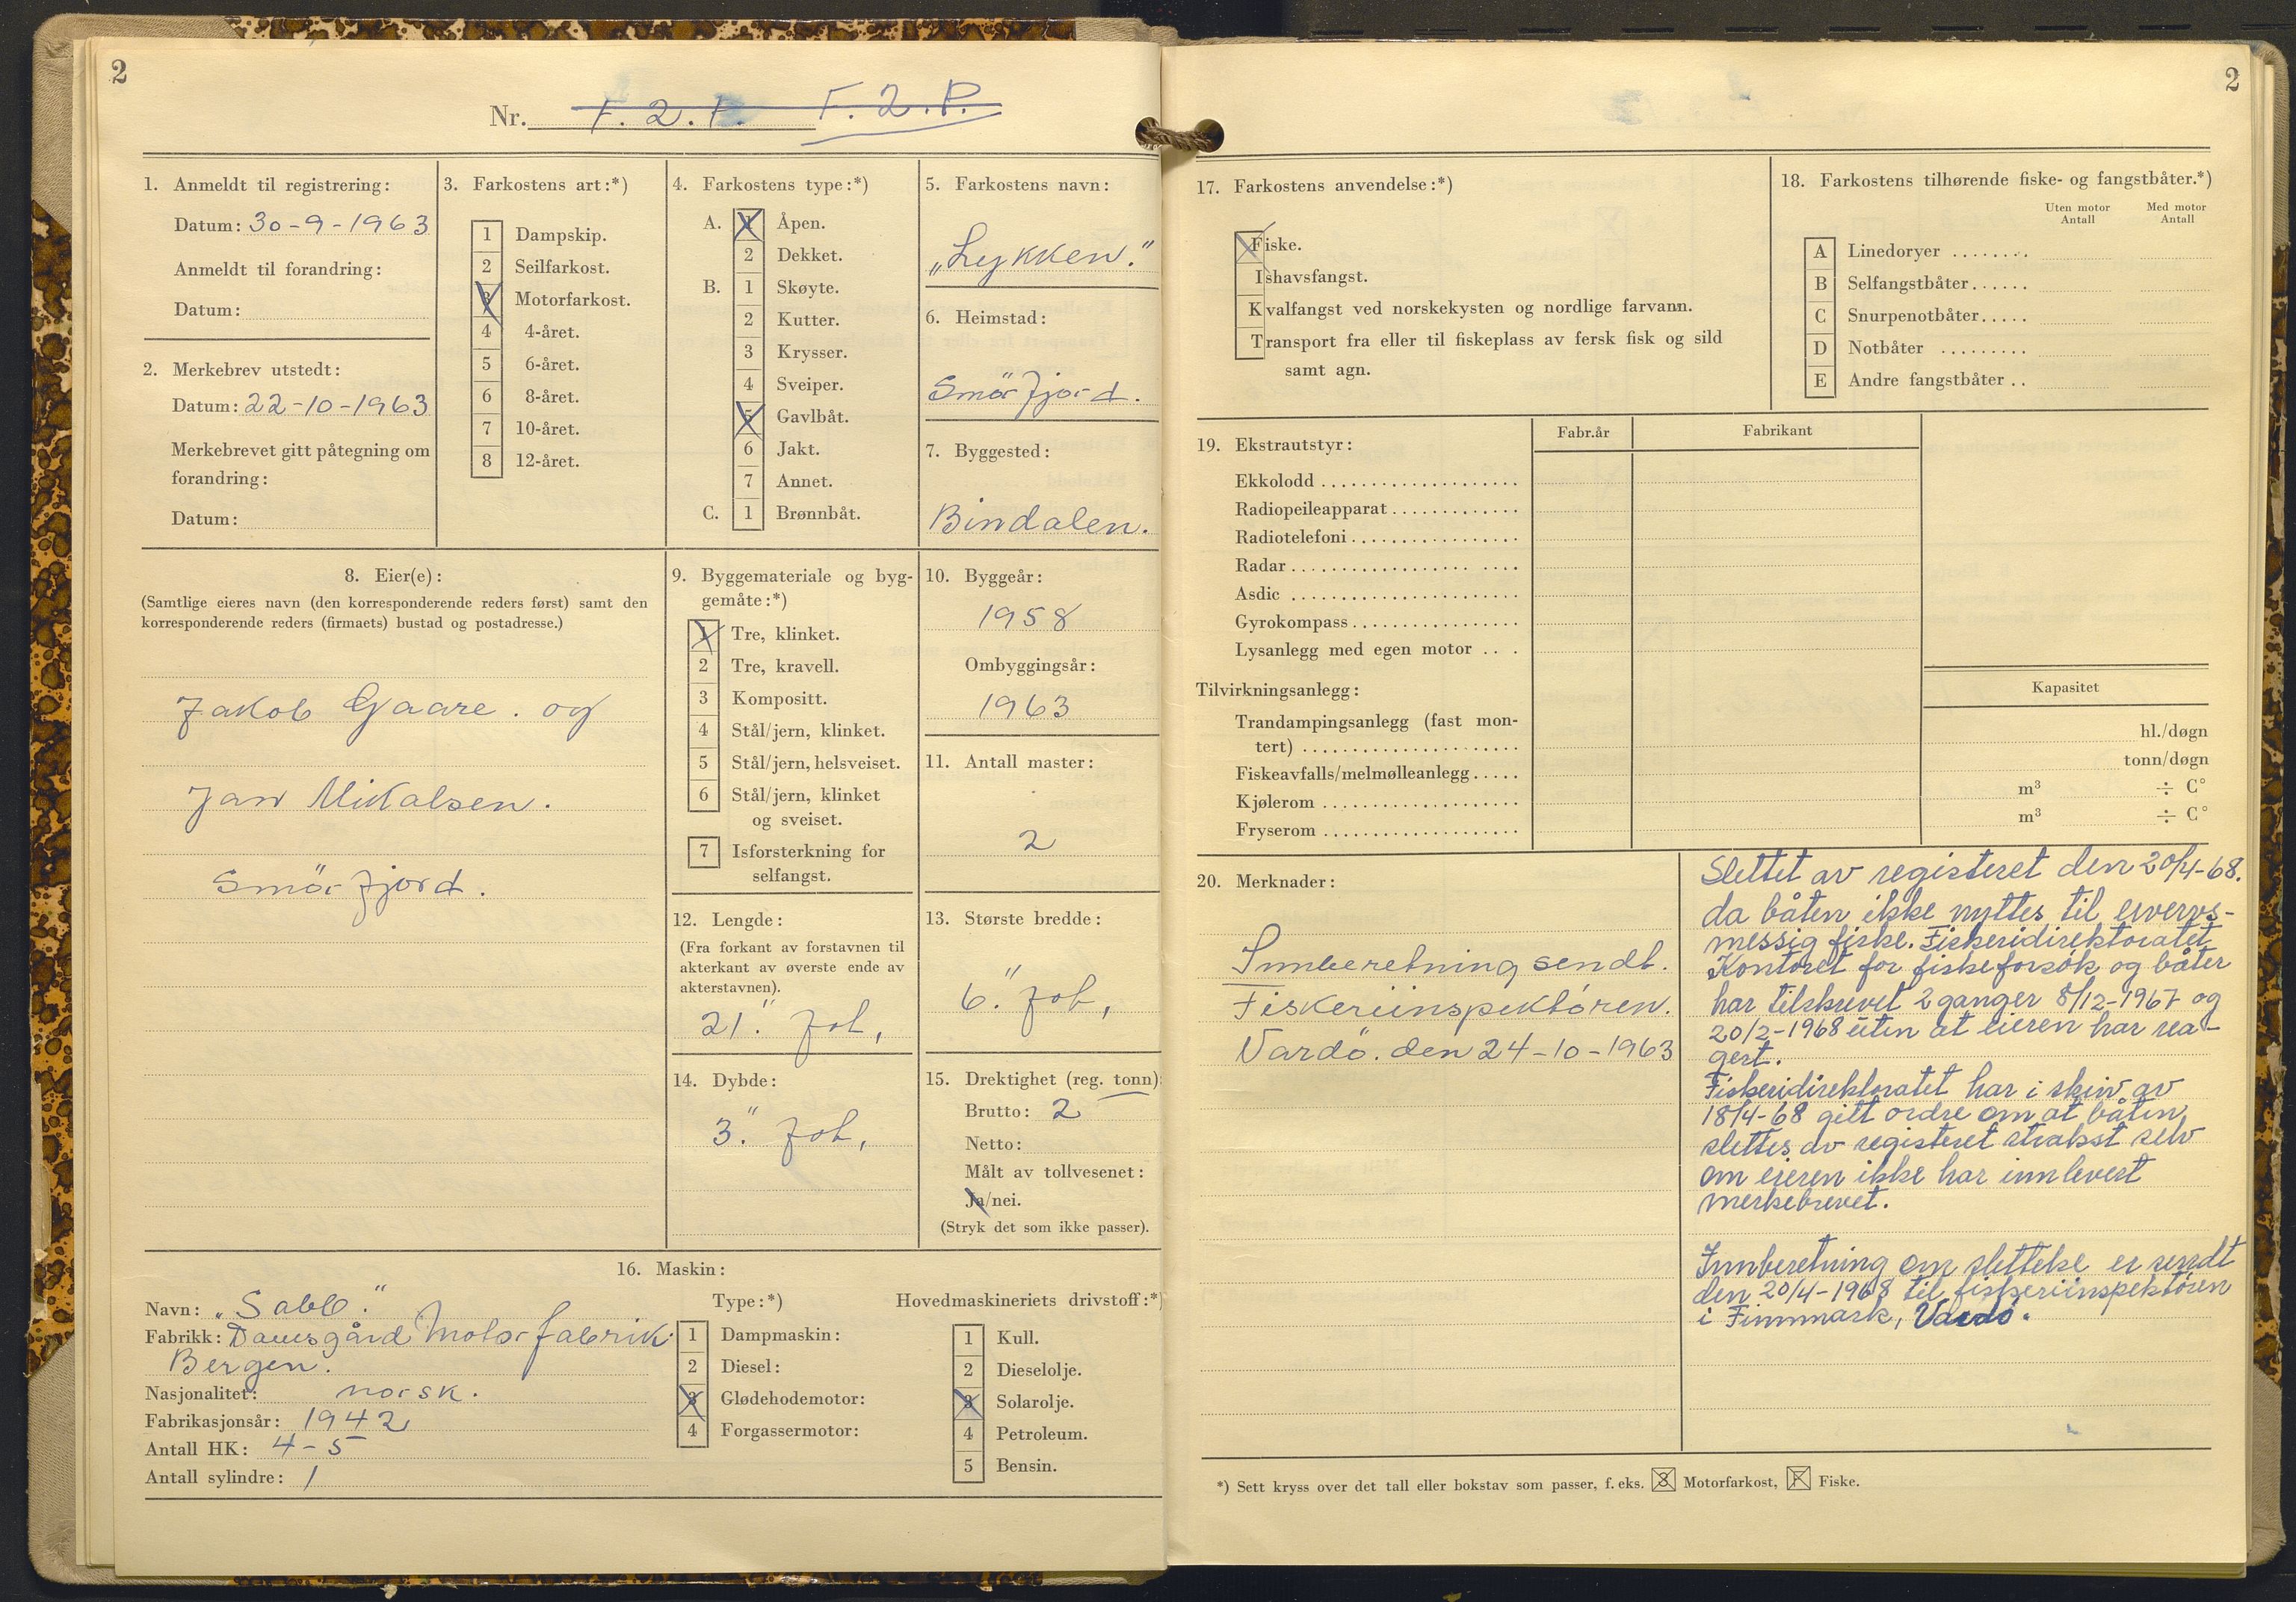 2
Nr. F. 2. P. F. 2. P.
1. Anmeldt til registrering:
Datum: 30-9-1963
Anmeldt til forandring:
Datum:
2. Merkebrev utstedt:
Datum: 22-10-1963
Merkebrevet gitt påtegning om
forandring:
Datum:
3. Farkostens art:*)
1 Dampskip.
2 Seilfarkost.
3 Motorfarkost.
4 4-året.
5 6-året.
6 8-året.
7 10-året.
8 12-året.
4. Farkostens type:*)
A. 1 Åpen.
2 Dekket.
B. 1 Skøyte.
2 Kutter.
3 Krysser.
4 Sveiper.
5 Gavlbåt.
6 Jakt.
7 Annet.
C. 1 Brønnbåt.
5. Farkostens navn:
„Lykken."
6. Heimstad:
Smörfjord.
7. Byggested:
Bindalen.
8. Eier(e):
(Samtlige eieres navn (den korresponderende reders først) samt den
korresponderende reders (firmaets) bustad og postadresse.)
Jakob Gaare. og
Jan Mikalsen.
Smörfjord.
9. Byggemateriale og byg-
gemåte:*)
1 Tre, klinket.
2 Tre, kravell.
3 Kompositt.
4 Stål/jern, klinket.
5 Stål/jern, helsveiset.
6 Stål/jern, klinket
og sveiset.
7 Isforsterkning for
selfangst.
10. Byggeår:
1958
Ombyggingsår:
1963
11. Antall master:
2
12. Lengde:
(Fra forkant av forstavnen til
akterkant av øverste ende av
akterstavnen).
21." fot,
13. Største bredde:
6." fot,
14. Dybde:
3." fot,
15. Drektighet (reg. tonn):
Brutto: 2
Netto:
Målt av tollvesenet:
Ja/nei.
(Stryk det som ikke passer).
16. Maskin:
Navn: „Sabb."
Fabrikk: Damsgård Motorfabrik
Bergen.
Nasjonalitet: norsk.
Fabrikasjonsår: 1942
Antall HK: 4-5
Antall sylindre: 1
Type:*)
1 Dampmaskin:
2 Diesel:
3 Glødehodemotor:
4 Forgassermotor:
Hovedmaskineriets drivstoff:*)
1 Kull.
2 Dieselolje.
3 Solarolje.
4 Petroleum.
5 Bensin.
2
17. Farkostens anvendelse:*)
Fiske.
Ishavsfangst.
Kvalfangst ved norskekysten og nordlige farvann.
Transport fra eller til fiskeplass av fersk fisk og sild
samt agn.
18. Farkostens tilhørende fiske- og fangstbåter.*)
Uten motor Med motor
Antall Antall
A Linedoryer
B Selfangstbåter
C Snurpenotbåter
D Notbåter
E Andre fangstbåter
19. Ekstrautstyr:
Fabr.år Fabrikant
Ekkolodd
Radiopeileapparat
Radiotelefoni
Radar
Asdic
Gyrokompass
Lysanlegg med egen motor
Tilvirkningsanlegg:
Kapasitet
Trandampingsanlegg (fast mon-
tert) hl./døgn
Fiskeavfalls/melmølleanlegg tonn/døgn
Kjølerom m³ ÷ C°
Fryserom m³ ÷ C°
20. Merknader:
Innberetning sendt.
Fiskeriinspektören.
Vardö. den 24-10-1963
Slettet av registeret den 20/4-68.
da båten ikke nyttes til ervervs-
messig fiske. Fiskeridirektoratet
Kontoret for fiskeforsök og båter
har tilskrevet 2 ganger 8/12-1967 og
20/2-1968 uten at eieren har rea-
gert.
Fiskeridirektoratet har i skriv av
18/4-68 gitt ordre om at båten
slettes av registeret straksst selv
om eieren ikke har innlevert
merkebrevet.
Innberetning om slettelse er sendt
den 20/4-1968 til fiskeriinspektören
i Finnmark, Vardö.
*) Sett kryss over det tall eller bokstav som passer, f. eks. 3 Motorfarkost, F Fiske.